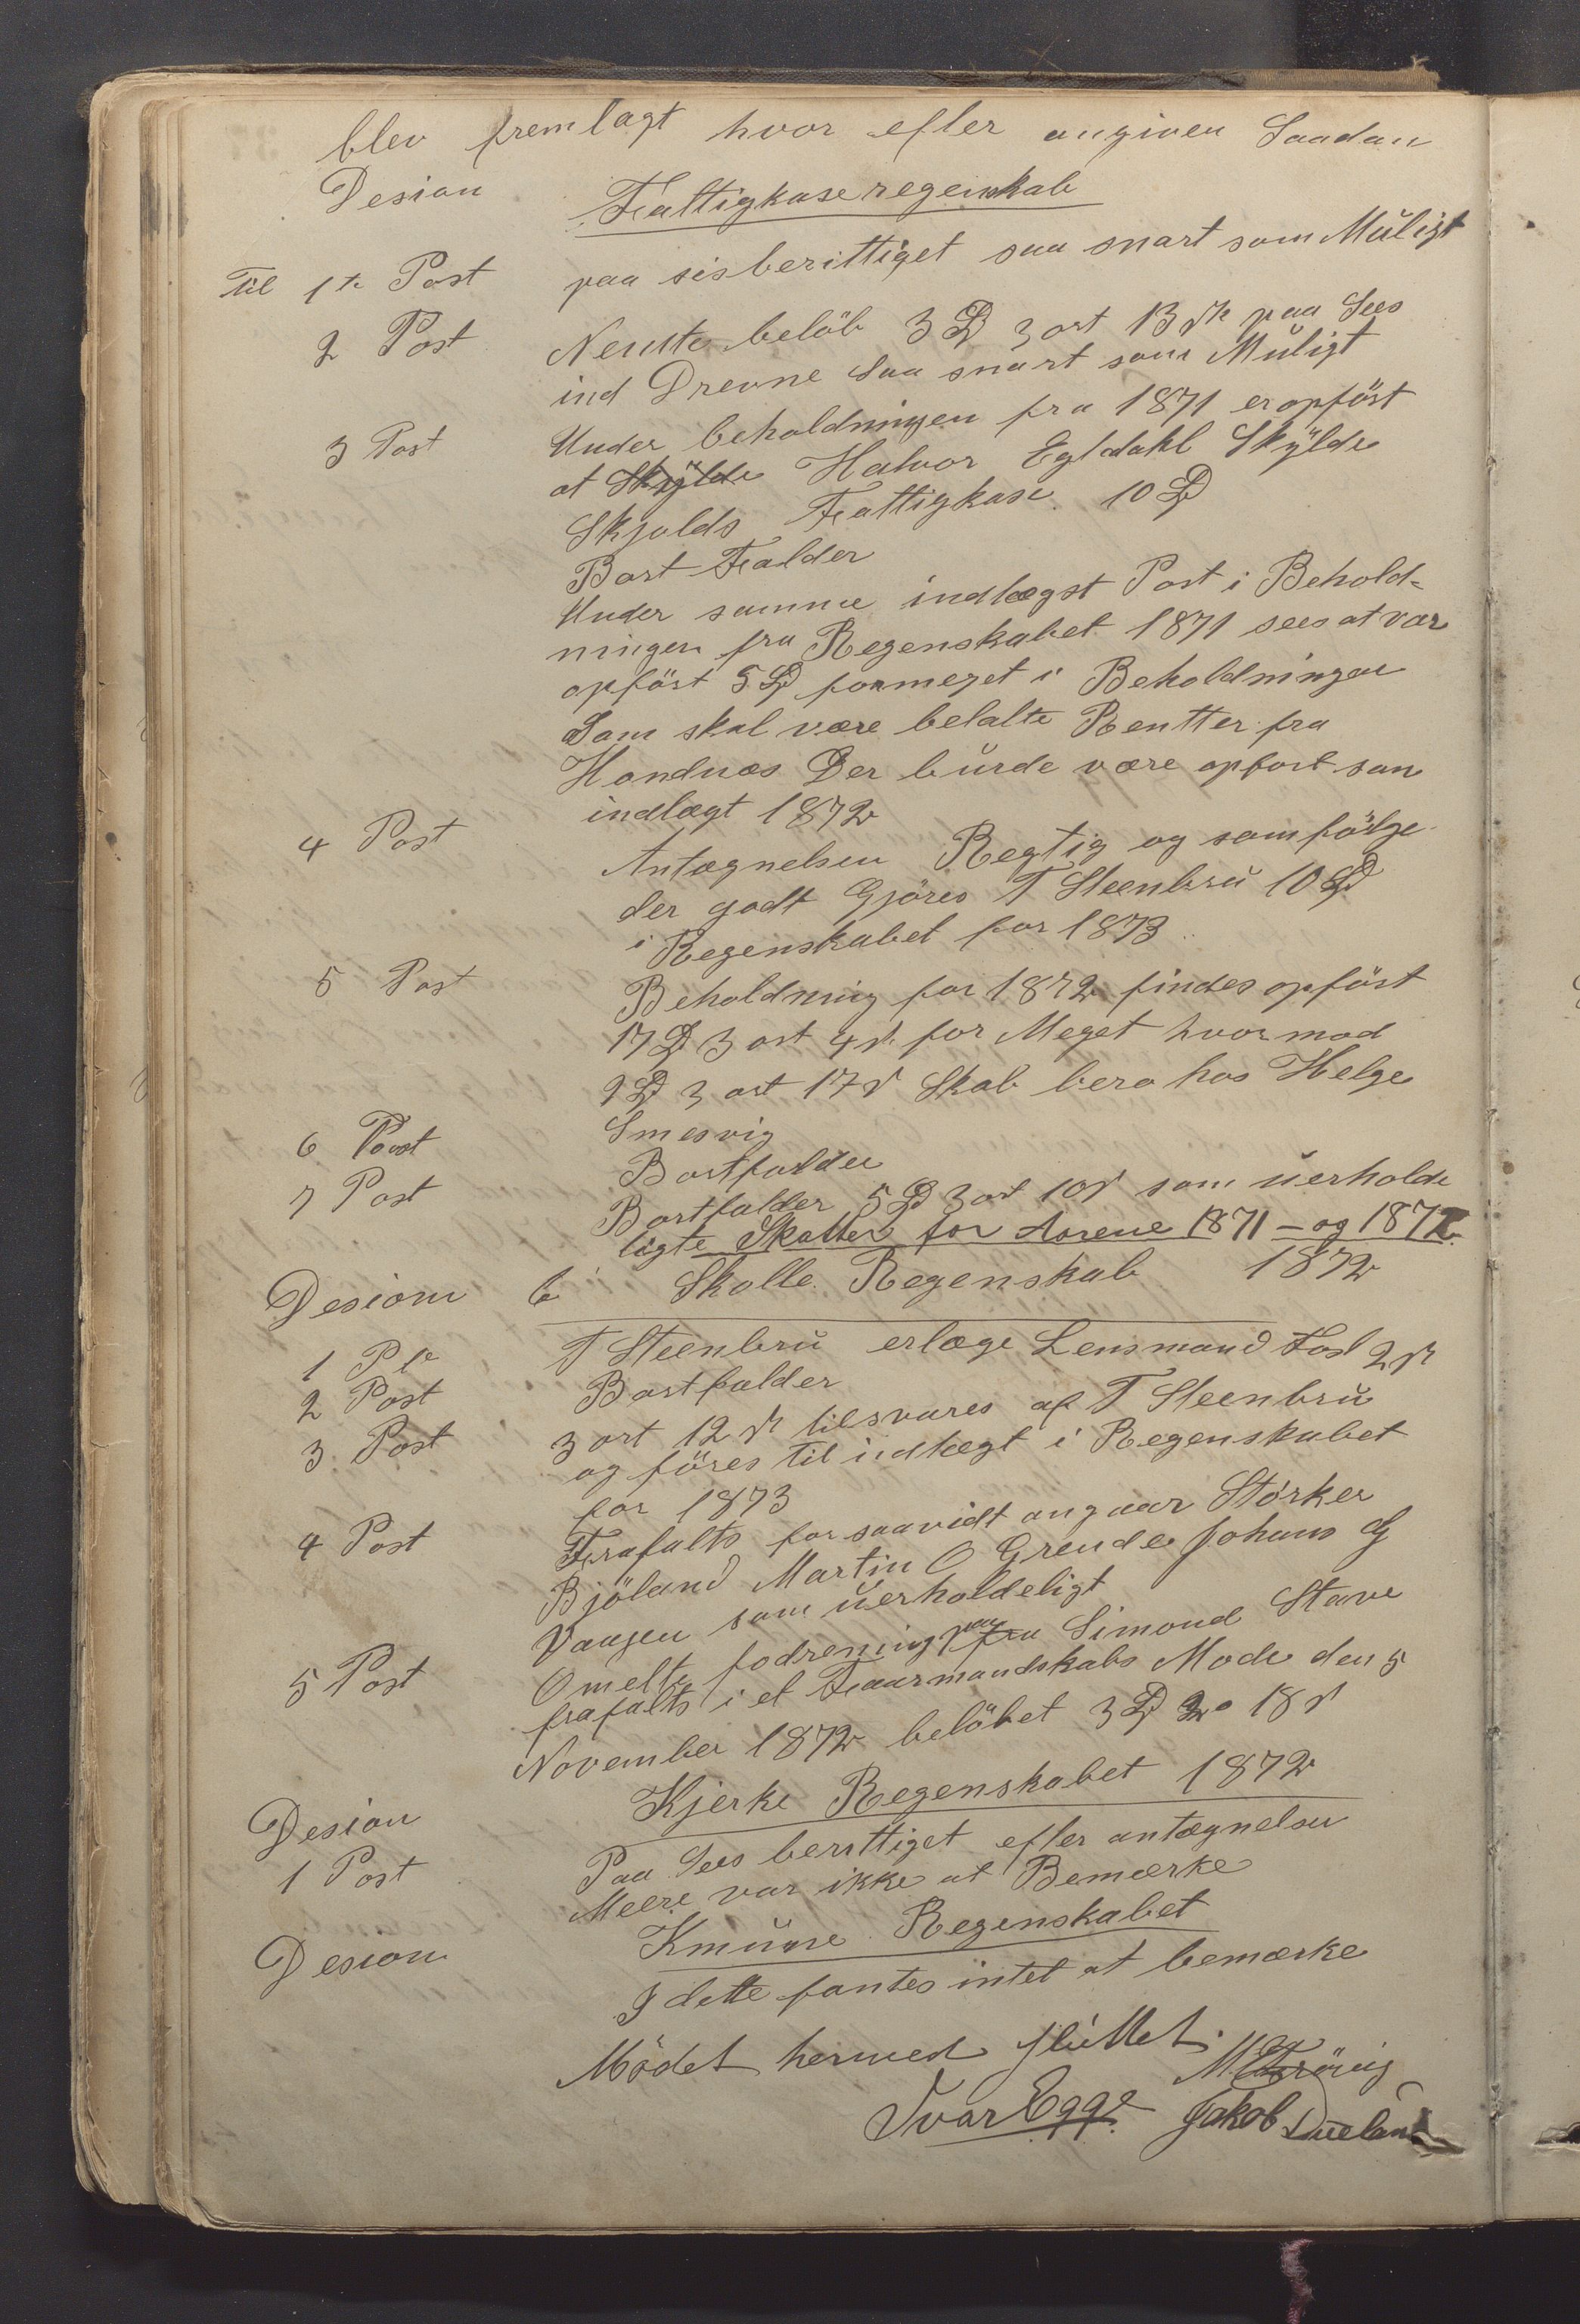 blev fremlagt hvor efler angiven Saadan
Desian Fattigkaseregenskab
Til 1te Post paa sisberittiget saa snart som Müligt
2 Post Nemte belöb 3 D 3 ort 13 s paa Sees
ind Drevne Saa snart som Müligt
3 Post Under beholdningen fra 1871 er opföst
at Skÿlde Halvor Egldahl Skÿlde
Skjolds Fattigkase 10 D
Bort Falder
Under samme indtægst Post i Behold-
ningen fra Regenskabet 1871 sees at vær
opföst 5 D formeget i Beholdningen
Som skal være belalte Rentter fra
Hondnæs Der bürde være opfort som
indlægt 1872
4 Post Antægnelsen Regtig og som fölge
der godt Gjöres T Steenbrü 10 D
i Regenskabet for 1873
5 Post Beholdning for 1872 findes opföst
17 D 3 ort 4 s for Meget hvor mod
9 D 3 ort 17 s Skab bero hos Helge
Smesvig
6 Post Bortfalder
7 Post Bortfalder 5 D 3 ort 10 s som üerholde
ligte Skatter for Aarene 1871 – og 1872
Desiom Skolle Regenskab 1872
1 Pt T Steenbrü erlæge Lensmand 2 s
2 Post Bortfalder
3 Post 3 ort 12 s tilsvares af T Steenbrü
og föres til indtægt i Regenskabet
for 1873
4 Post Frafalts for saavidt angaar Storker
Bjöland Martin O Grende Johans
Vaagen som üerholdeligt
5 Post Omelte fodrening paa fra Simond Stave
frafalts i et Foarmandskabs Mode den 5
November 1872 belöbet 3 D 2 o 18 s
Kjerke Regenskabet 1872
Desian
1 Post Paa Sees berittiget efler antægnelsen
Meere var ikke at Bemærke
Kmüne Regenskabet
Desion I dette fantes intet at bemærke
Mödet hermed slüttet.
Ivar Egge Jakob Dueland